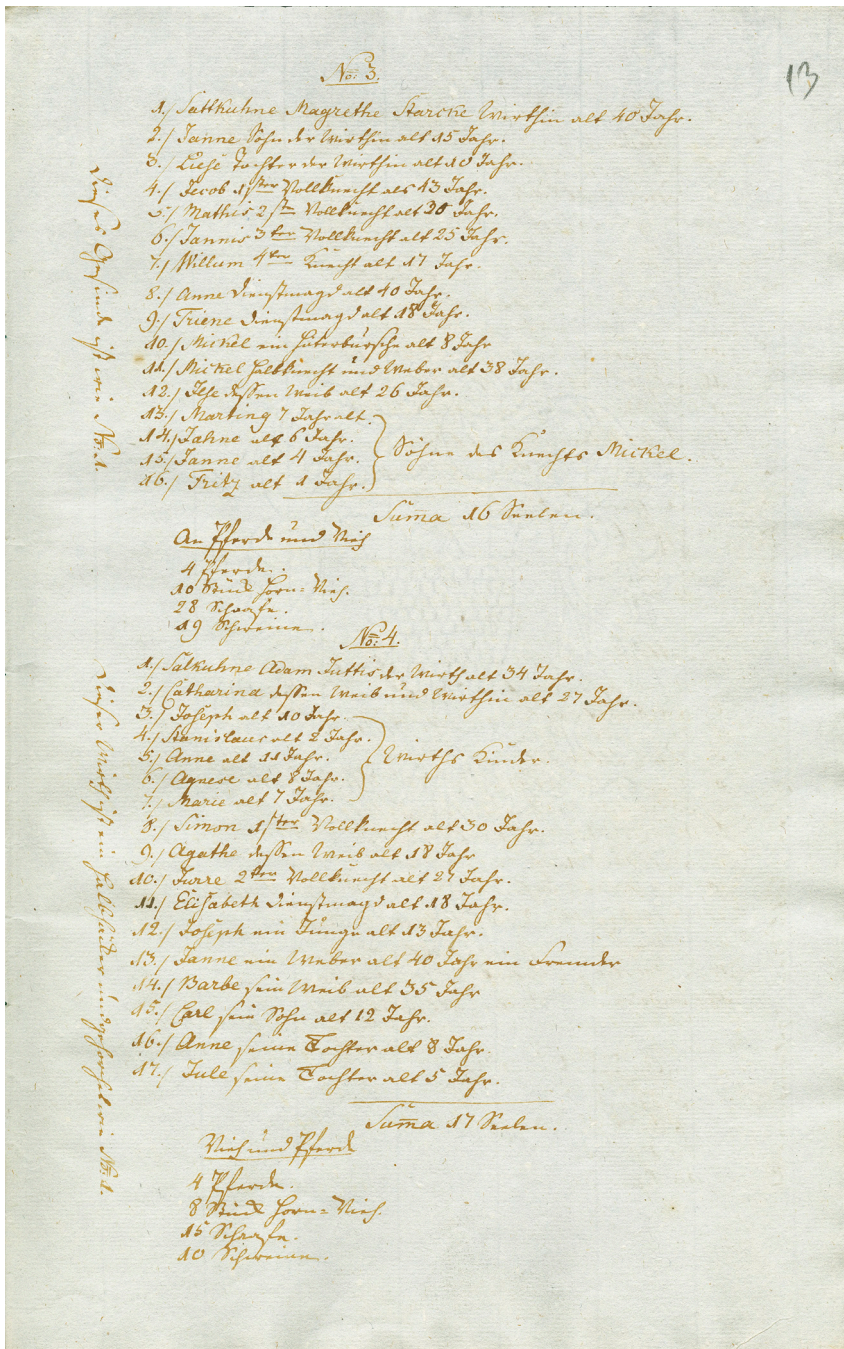 13
No: 3.
1./ Sattkuhne Magrethe Starcke Wirthin alt 40 Jahr.
2./ Janne Sohn der Wirthin alt 15 Jahr.
3./ Liese Tochter der Wirthin alt 10 Jahr.
4./ Jecob 1ster Vollknecht als 43 Jahr.
5./ Mathis 2te Vollknecht alt 30 Jahr.
6./ Jannis 3ter Vollknecht alt 25 Jahr.
7./ Willum 4ter Knecht alt 17 Jahr.
8./ Anne Dienstmagd alt 40 Jahr.
9./ Triene Dienstmagd alt 18 Jahr.
10./ Mickel ein Hüterbursche alt 8 Jahr
11./ Mickel Halbknecht und Weber alt 38 Jahr.
12./ Ilse dessen Weib alt 26 Jahr.
13./ Marting 7 Jahr alt.
14./ Jahne alt 6 Jahr.
15./ Janne alt 4 Jahr.
16./ Fritz alt 1 Jahr.
Söhne des Knechts Mickel.
Suma 16 Seelen.
Dieses Gesinde ist wie No: 1.
An Pferde und Vieh
4 Pferde.
10 Stück Horn=Vieh.
28 Schaafe.
19 Schweine.
No: 4.
1./ Salkuhne Adam Juttis der Wirth alt 34 Jahr.
2./ Catharina dessen Weib und Wirthin alt 27 Jahr.
3./ Joseph alt 10 Jahr.
4./ Stanislaus alt 2 Jahr.
5./ Anne alt 11 Jahr.
6./ Agnese alt 8 Jahr.
7./ Marie alt 7 Jahr.
Wirths Kinder.
8./ Simon 1ster Vollknecht alt 30 Jahr.
9./ Agathe dessen Weib alt 18 Jahr
10./ Jurre 2ter Vollknecht alt 27 Jahr.
11./ Elisabeth Dienstmagd alt 18 Jahr.
12./ Joseph ein Junge alt 13 Jahr.
13./ Janne ein Weber alt 40 Jahr ein Fremder
14./ Barbe sein Weib alt 35 Jahr
15./ Carl sein Sohn alt 12 Jahr.
16./ Anne seine Tochter alt 8 Jahr.
17./ Jule seine Tochter alt 5 Jahr.
Suma 17 Seelen.
Dieser Wirth ist ein Halbhäker und gehorchet wie No: 1.
Vieh und Pferde
4 Pferde.
8 Stück Horn=Vieh.
15 Schaafe.
10 Schweine.